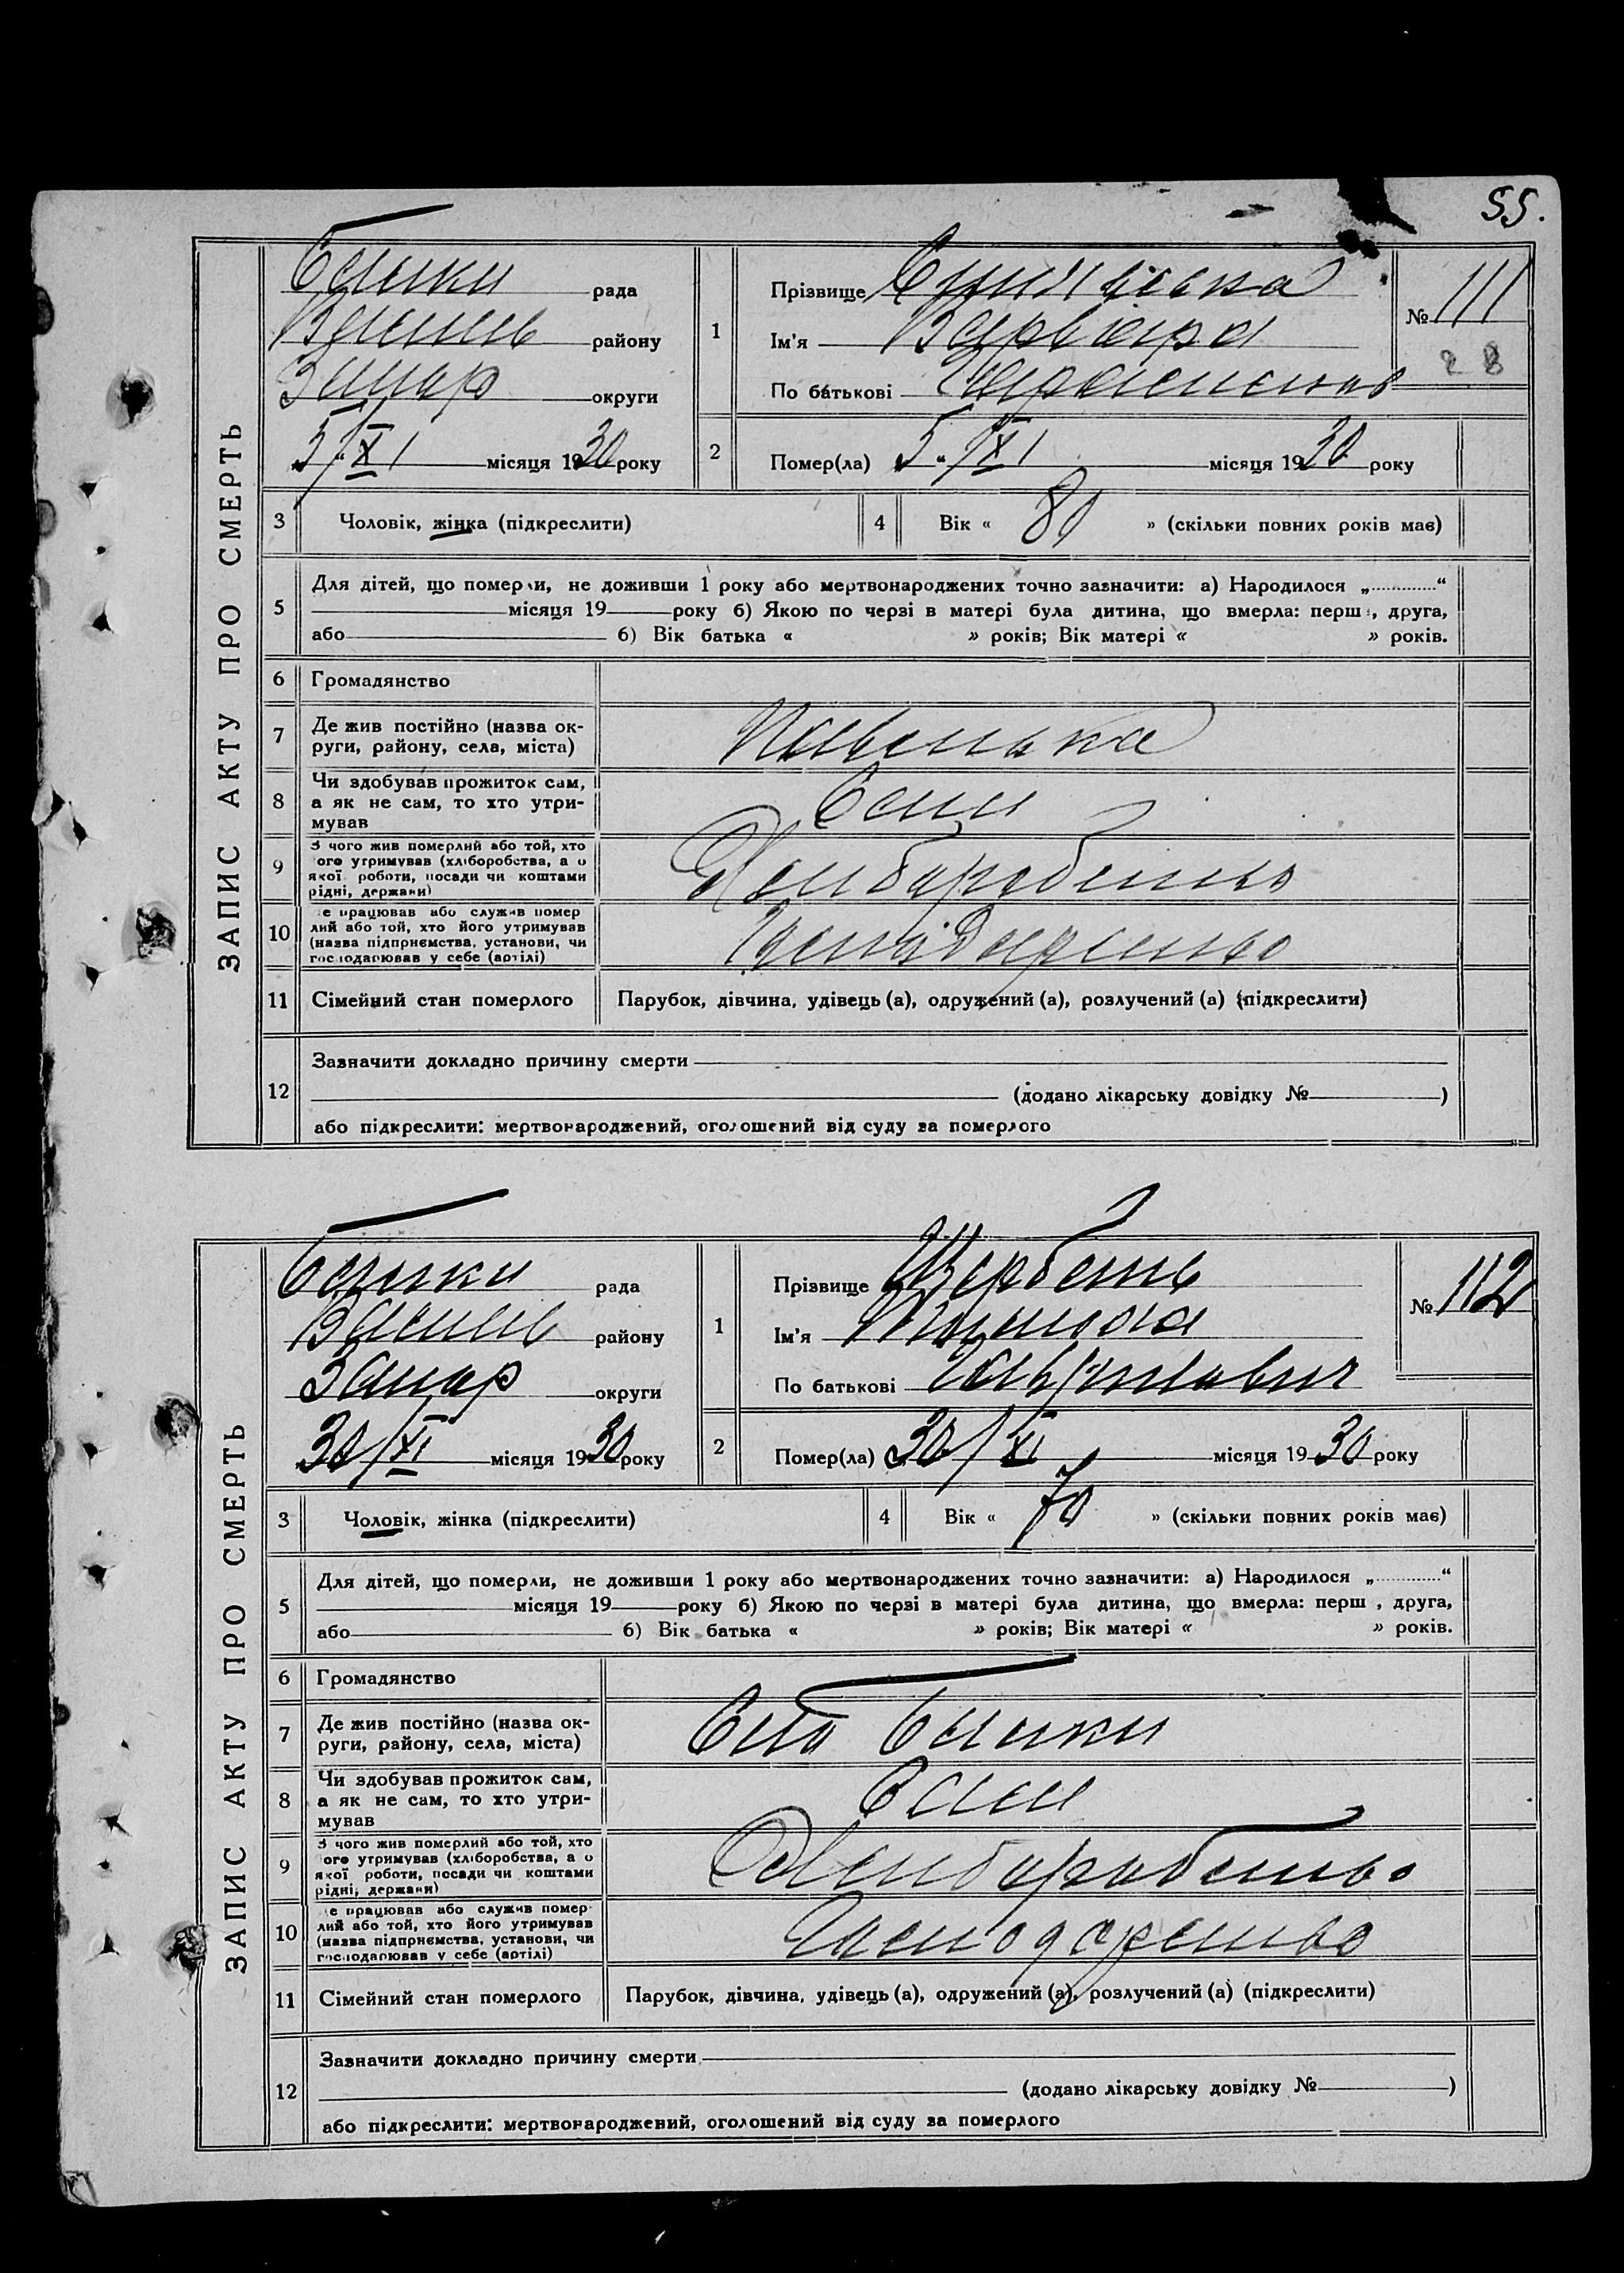 55.
ЗАПИС АКТУ ПРО СМЕРТЬ
Балики рада
району
округи
5/XI місяця 1930 року
1
Прізвище
Ім'я Варвара
По батькові
№ 111
28
2
Помер(ла) 5 „ /XI місяця 1930 року
3 Чоловік, жінка (підкреслити)
4 Вік « 80 » (скільки повних років має)
5
Для дітей, що померли, не доживши 1 року або мертвонароджених точно зазначити: а) Народилося „ “
місяця 19 року б) Якою по черзі в матері була дитина, що вмерла: перш , друга,
або б) Вік батька « » років; Вік матері « » років.
6 Громадянство
7 Де жив постійно (назва ок-
руги, району, села, міста)
8 Чи здобував прожиток сам,
а як не сам, то хто утри-
мував
Сам
9 З чого жив померлий або той, хто
ого утримував (хліборобства, а о
якої роботи, посади чи коштами
рідні, держави)
Хліборобство
10 е працював або служив помер
лий або той, хто його утримував
(назва підприємства, установи, чи
господарював у себе (артілі)
Господарство
11 Сімейний стан померлого Парубок, дівчина, удівець (а), одружений (а), розлучений (а) (підкреслити)
12
Зазначити докладно причину смерти
(додано лікарську довідку № )
або підкреслити: мертвонароджений, оголошений від суду за померлого
ЗАПИС АКТУ ПРО СМЕРТЬ
Балики рада
району
округи
30/XI місяця 1930 року
1
Прізвище Щербань
Ім'я
По батькові
№ 112
2
Помер(ла) 30/XI місяця 1930 року
3 Чоловік, жінка (підкреслити)
4 Вік « 70 » (скільки повних років має)
5
Для дітей, що померли, не доживши 1 року або мертвонароджених точно зазначити: а) Народилося „ “
місяця 19 року б) Якою по черзі в матері була дитина, що вмерла: перш , друга,
або б) Вік батька « » років; Вік матері « » років.
6 Громадянство
7 Де жив постійно (назва ок-
руги, району, села, міста)
Село Балики
8 Чи здобував прожиток сам,
а як не сам, то хто утри-
мував
Сам
9 З чого жив померлий або той, хто
ого утримував (хліборобства, а о
якої роботи, посади чи коштами
рідні, держави)
Хліборобство
10 е працював або служив помер
лий або той, хто його утримував
(назва підприємства, установи, чи
господарював у себе (артілі)
Господарство
11 Сімейний стан померлого Парубок, дівчина, удівець (а), одружений (а), розлучений (а) (підкреслити)
12
Зазначити докладно причину смерти
(додано лікарську довідку № )
або підкреслити: мертвонароджений, оголошений від суду за померлого